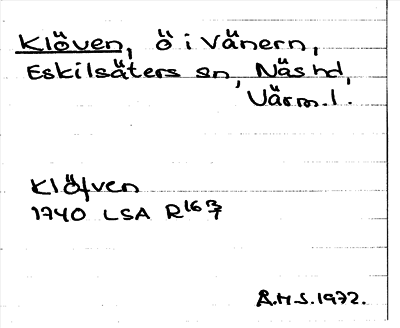 Klöven, ö i Vänern,
Eskilsäters sn, Näs hd,
Värm. l.
Klöfven
1740 LSA R16 13/7
Å.H S. 1972.